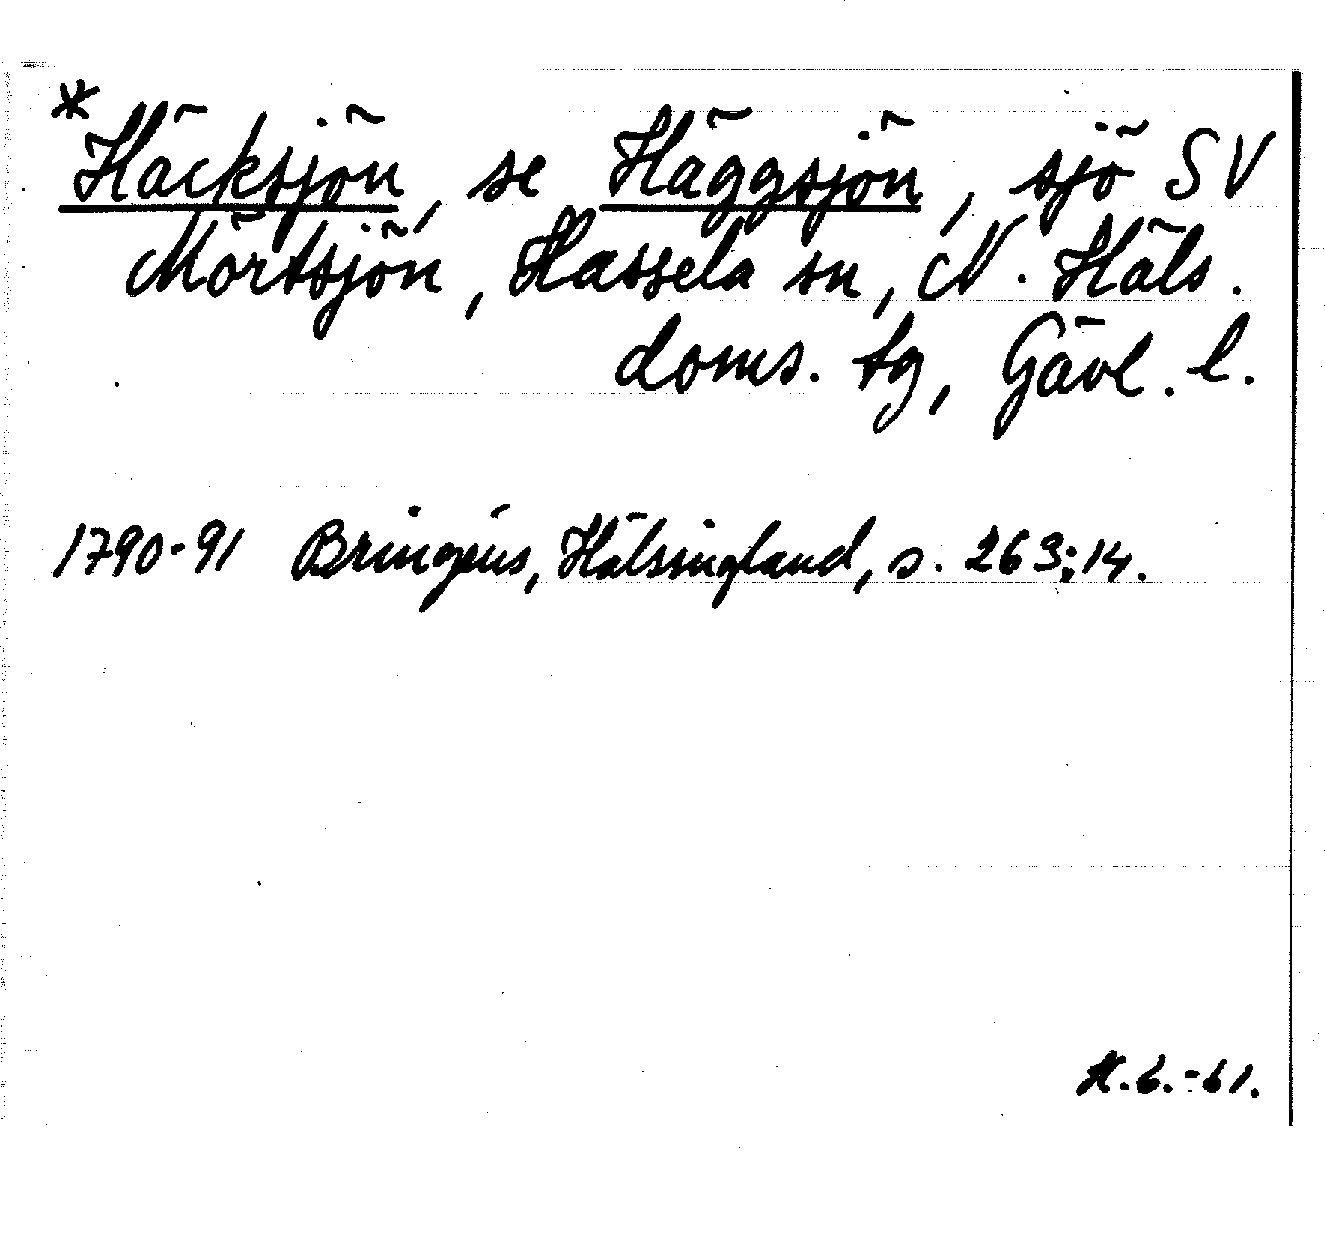 * Häcksjön, se Häggsjön, sjö SV
Mörtsjön, Hassela sn, N. Häls.
doms. tg, Gävl. l.
1790-91 Bringéus, Hälsingland, s. 263:14.
H.6.-61.